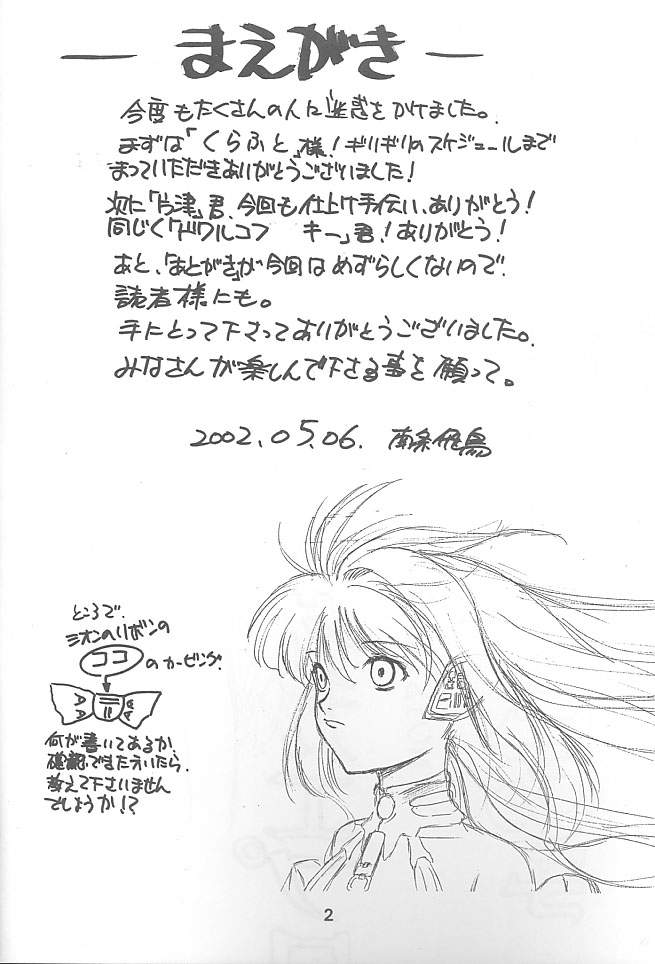 まえがき
今度もたくさんの人に迷惑をかけました。
まずは「くらふと」様！ギリギリのスケジュールまで
まっていただきありがとうございました！
次に「片津」君、今回も仕上げ手伝い、ありがとう！
同じく「ドワルコフ キー」君！ありがとう！
あと、「あとがき」が今回はめずらしくないので、
読者様にも。
手にとって下さってありがとうございました。
みなさんが楽しんで下さる事を願って。
2002.05.06. 南条飛鳥
ところで、
シオンのリボンの
ココのカービング、
何が書いてあるか、
確認できた方いたら、
教えて下さいません
でしょうか！？
2